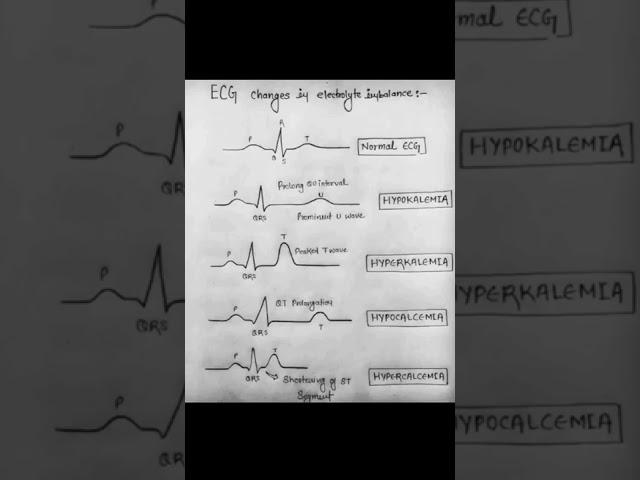 ECG changes in electrolyte imbalance :-
R
P
T
Q
S
Normal ECG
Prolong QU interval
P
U
QRS
Prominent U wave
HYPOKALEMIA
T
Peaked T wave
P
QRS
HYPERKALEMIA
QT Prolongation
P
QRS
T
HYPOCALCEMIA
P
T
QRS
Shortening of ST
Segment
HYPERCALCEMIA
mal ECG
P
QRS
HYPOKALEMIA
P
QRS
HYPERKALEMIA
P
QRS
HYPOCALCEMIA